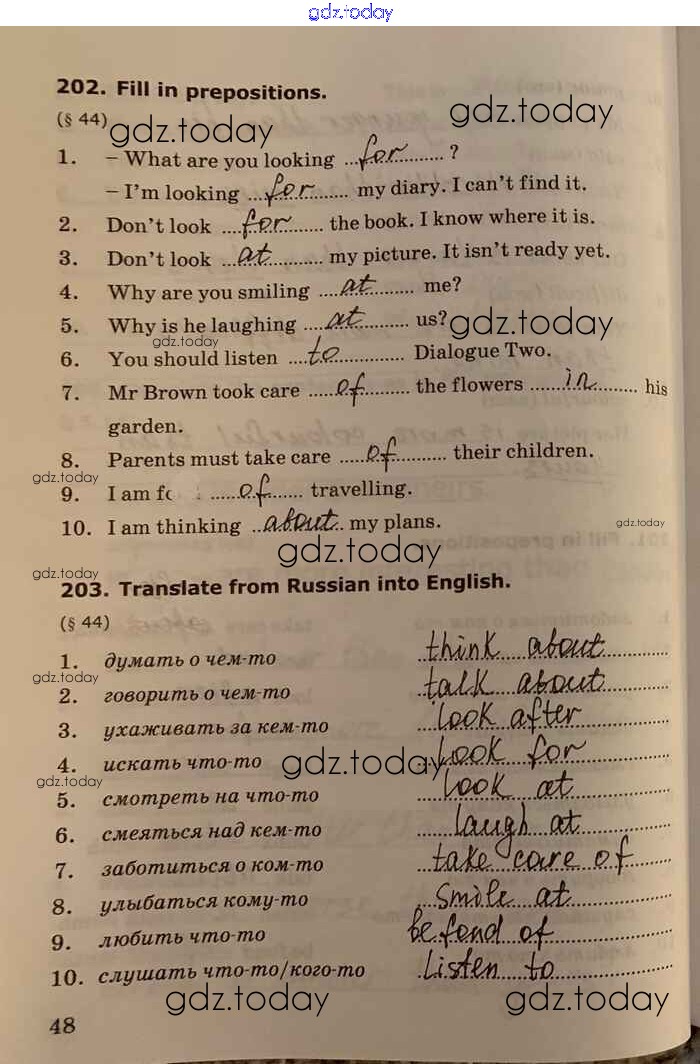 gdz.today
202. Fill in prepositions.
(§ 44) gdz.today gdz.today
1. – What are you looking ...for.......... ?
– I'm looking ...for.......... my diary. I can't find it.
2. Don't look ....for.......... the book. I know where it is.
3. Don't look ...at.......... my picture. It isn't ready yet.
4. Why are you smiling ....at.......... me?
5. Why is he laughing ....at.......... us? gdz.today
gdz.today
6. You should listen ....to.............. Dialogue Two.
7. Mr Brown took care .....of.......... the flowers .......in.......... his
garden.
8. Parents must take care .....of.......... their children.
gdz.today
9. I am ......of....... travelling.
10. I am thinking ..about.. my plans. gdz.today
gdz.today
gdz.today
203. Translate from Russian into English.
(§ 44)
1. думать о чем-то think about
gdz.today
2. говорить о чем-то talk about
3. ухаживать за кем-то look after
4. искать что-то gdz.today look for
gdz.today
5. смотреть на что-то look at
6. смеяться над кем-то laugh at
7. заботиться о ком-то take care of
8. улыбаться кому-то smile at
9. любить что-то be fond of
10. слушать что-то/кого-то listen to
gdz.today gdz.today
48